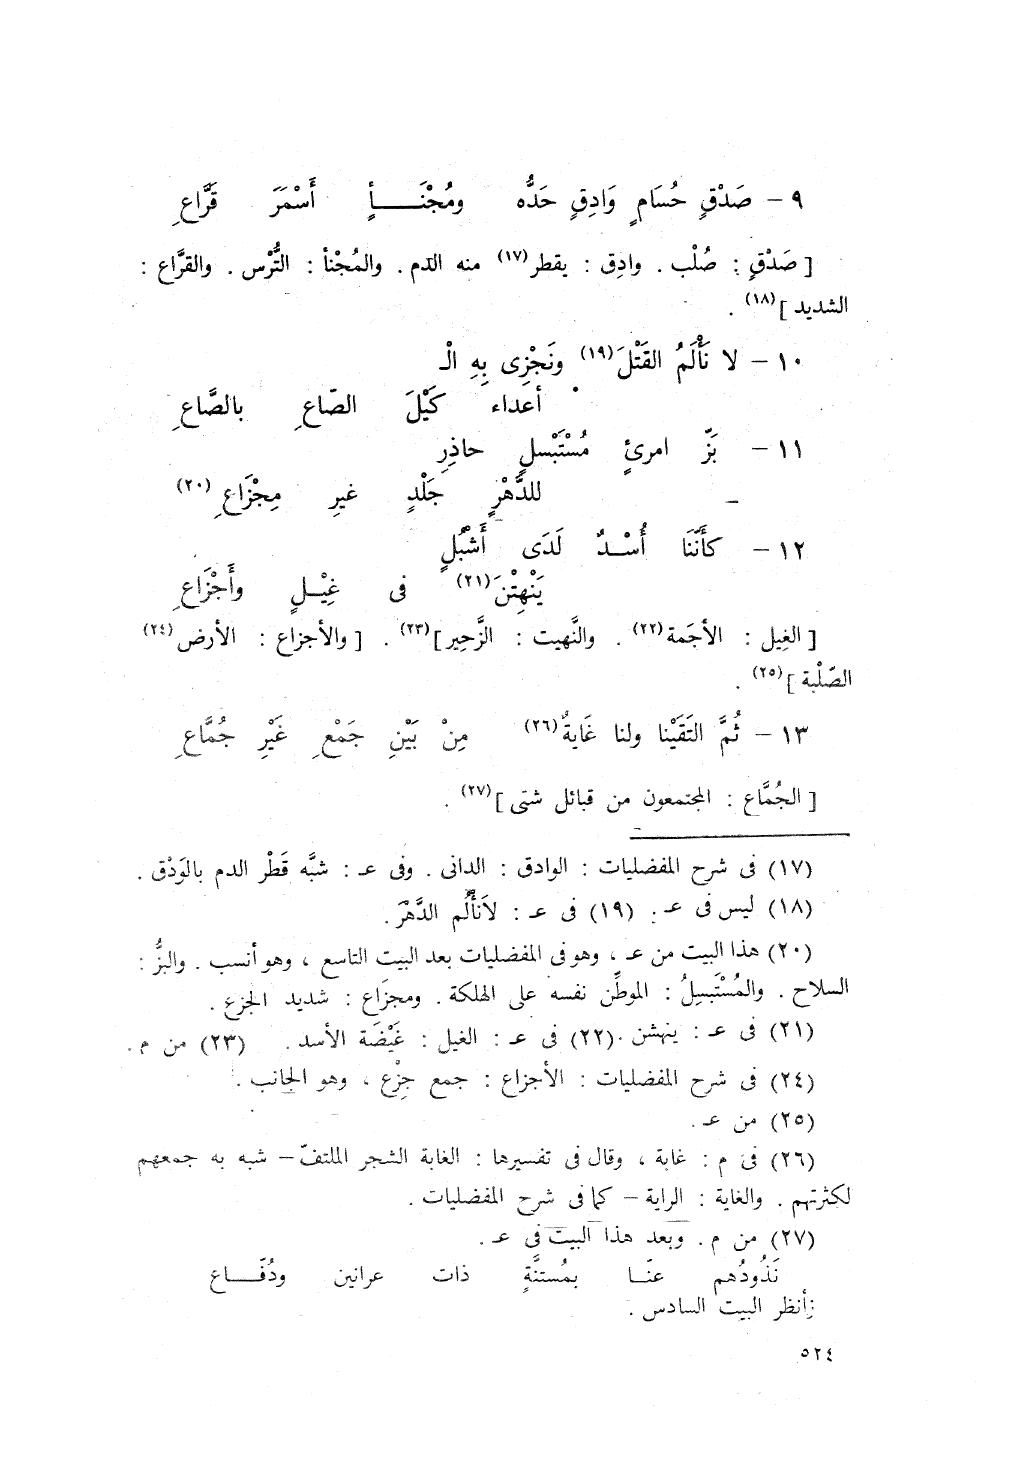 ٩ – صَدْقٍ حُسَامٍ وَادِقٍ حَدُّه ومُجْنَـــأٍ أَسْمَرَ قَرَّاعِ
[ صَدْقٍ : صُلْب . وادِق : يقطر(١٧) منه الدّم . والمُجْنأ : التُّرْس . والقرَّاع :
الشديد ](١٨) .
١٠ – لا نَأْلَمُ القَتْلَ(١٩) ونَجْزِى بِهِ الْـ
أعداء كَيْلَ الصّاعِ بالصَّاعِ
١١ – بَزّ امرئٍ مُسْتَبْسلٍ حاذِرِ
للدَّهْرِ جَلْدٍ غيرِ مِجْزَاعِ (٢٠)
١٢ – كأنَّنَا أُسْـدٌ لَدَى أَشْبُلٍ
يَنْهِتْنَ(٢١) فى غِيْـلٍ وأَجْزَاعِ
[ الغِيل : الأجَمة(٢٢) . والنَّهيت : الزَّحِير](٢٣) . [ والأجزاع : الأرض(٢٤)
الصّلْبة ](٢٥) .
١٣ – ثُمَّ التَقَيْنا ولنا غَايةٌ(٢٦) مِنْ بَيْنِ جَمْعٍ غَيْرِ جُمَّاعِ
[ الجُمَّاع : المجتمعون من قبائل شتى ](٢٧) .
(١٧) فى شرح المفضليات : الوادق : الدانى . وفى عـ : شبَّه قَطْر الدم بالوَدْق .
(١٨) ليس فى عـ . (١٩) فى عـ : لاَنأْلُم الدَّهْرَ .
(٢٠) هذا البيت من عـ ، وهو فى المفضليات بعد البيت التاسع ، وهو أنسب . والبزُّ :
السلاح . والمُسْتَبسِلُ : الموطِّن نفسه على الهلكة . ومجزَاع : شديد الجزع .
(٢١) فى عـ : ينهشن . (٢٢) فى عـ : الغيل : غَيْضَة الأسد . (٢٣) من م .
(٢٤) فى شرح المفضليات : الأجزاع : جمع جِزْع ، وهو الجانب .
(٢٥) من عـ .
(٢٦) فى م : غابة ، وقال فى تفسيرها : الغابة الشجر الملتفّ – شبه به جمعهم
لكثرتهم . والغاية : الراية – كما فى شرح المفضليات .
(٢٧) من م . وبعد هذا البيت فى عـ .
نَذُودُهم عنّـا بمُستنَّةٍ ذات عرانين ودُفّـــاع
أنظر البيت السادس .
٥٢٤